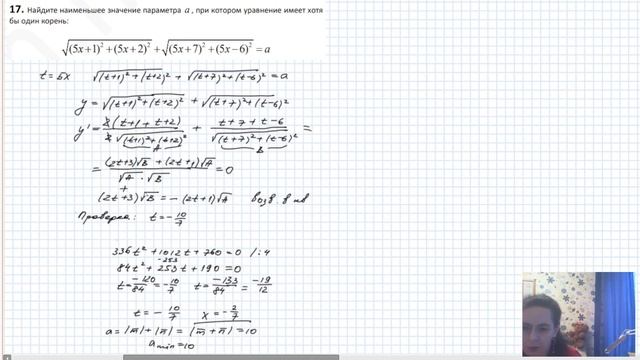 17. Найдите наименьшее значение параметра a , при котором уравнение имеет хотя
бы один корень:
√((5x+1)² + (5x+2)²) + √((5x+7)² + (5x−6)²) = a
t = 5x √((t+1)² + (t+2)²) + √((t+7)² + (t−6)²) = a
y = √((t+1)² + (t+2)²) + √((t+7)² + (t−6)²)
y' = 2(t+1 + t+2) / 2√((t+1)² + (t+2)²) + (t+7 + t−6) / √((t+7)² + (t−6)²) =
A B
= ((2t+3)√B + (2t+1)√A) / (√A · √B) = 0
+
(2t+3)√B = −(2t+1)√A возв. в кв
Проверка: t = −10/7
336t² + 1012t + 760 = 0 /:4
253
84t² + 253t + 190 = 0
t = −120/84 = −10/7 t = −133/84 = −19/12
t = −10/7 x = −2/7
a = |m| + |n| = |m + n| = 10
a min = 10